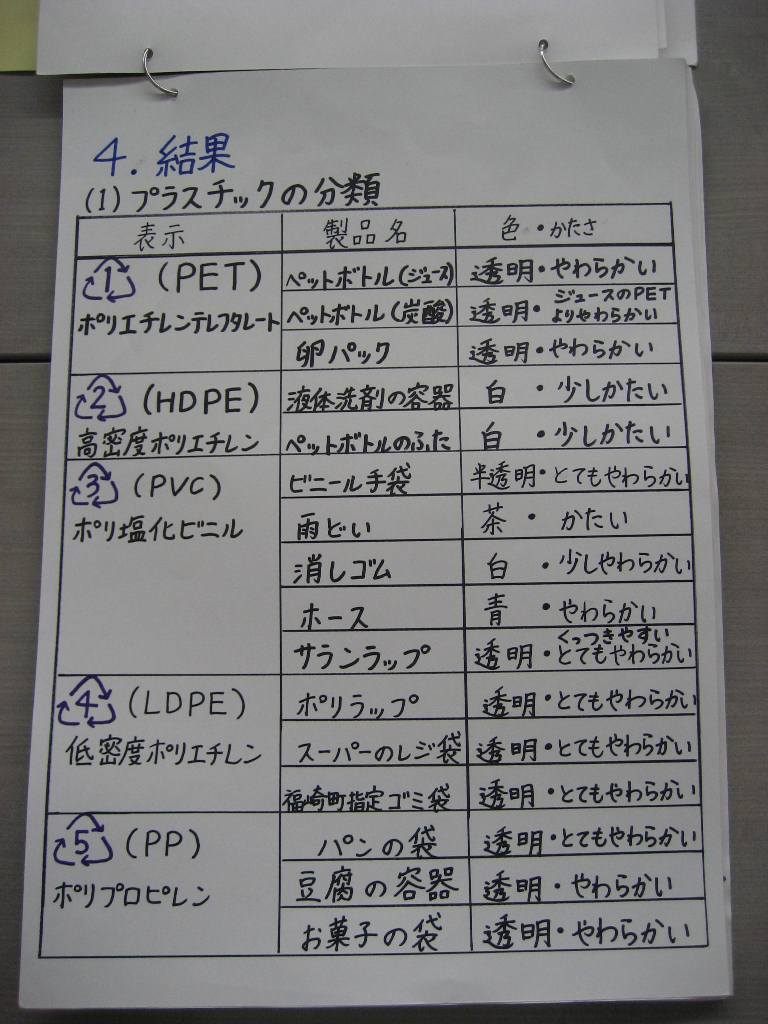 4. 結果
(1) プラスチックの分類
表示 製品名 色・かたさ
1 (PET) ペットボトル(ジュース) 透明・やわらかい
ポリエチレンテレフタレート ペットボトル(炭酸) 透明・ジュースのPET
よりやわらかい
卵パック 透明・やわらかい
2 (HDPE) 液体洗剤の容器 白・少しかたい
高密度ポリエチレン ペットボトルのふた 白・少しかたい
3 (PVC) ビニール手袋 半透明・とてもやわらかい
ポリ塩化ビニル 雨どい 茶・かたい
消しゴム 白・少しやわらかい
ホース 青・やわらかい
くっつきやすい
サランラップ 透明・とてもやわらかい
4 (LDPE) ポリラップ 透明・とてもやわらかい
低密度ポリエチレン スーパーのレジ袋 透明・とてもやわらかい
福崎町指定ゴミ袋 透明・とてもやわらかい
5 (PP) パンの袋 透明・とてもやわらかい
ポリプロピレン 豆腐の容器 透明・やわらかい
お菓子の袋 透明・やわらかい